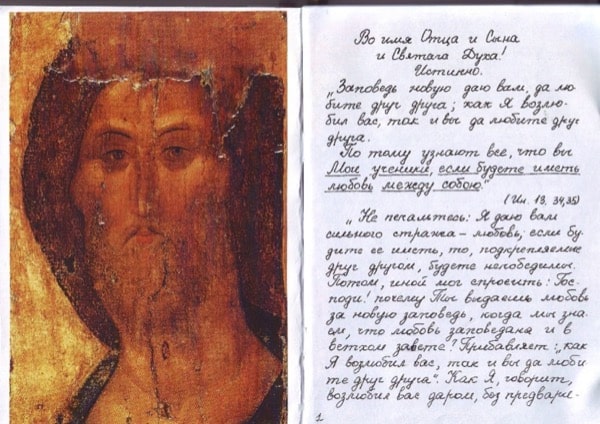 Во имя Отца и Сына
и Святаго Духа!
Истинно.
„Заповедь новую даю вам, да лю-
бите друг друга; как Я возлю-
бил вас, так и вы да любите друг
друга.
По тому узнают все, что вы
Мои ученики, если будете иметь
любовь между собою."
(Ин. 13, 34,35)
„ Не печальтесь: Я даю вам
сильного стража – любовь; если бу-
дите ее иметь, то, подкрепляемые
друг другом, будете непобедимы.
Потом, иной мог спросить: Гос-
поди! почему Ты выдаешь любовь
за новую заповедь, когда мы зна-
ем, что любовь заповедана и в
ветхом завете? Прибавляет: „как
Я возлюбил вас, так и вы да люби
те друг друга". Как Я, говорит,
возлюбил вас даром, без предвари-
1